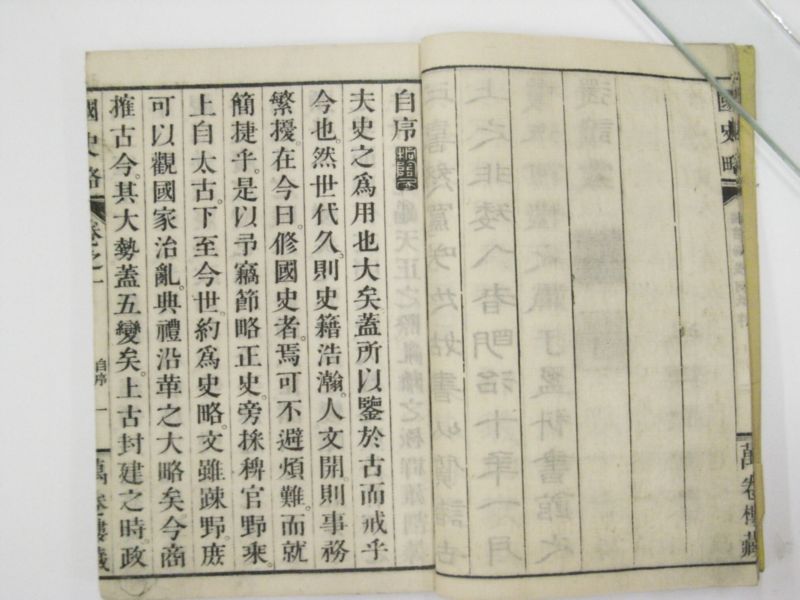 國史略
萬卷樓藏
自序
夫史之爲用也大矣蓋所以鑒於古而戒乎
今也。然世代久。則史籍浩瀚。人文開。則事務
繁擾。在今日。修國史者。焉可不避煩難。而就
簡捷乎。是以予竊節略正史。旁採稗官野乘。
上自太古。下至今世。約爲史略。文雖疎野。庶
可以觀國家治亂。典禮沿革之大略矣。今商
搉古今。其大勢蓋五變矣。上古封建之時。政
國史略 卷之一 自序 一 萬卷樓藏